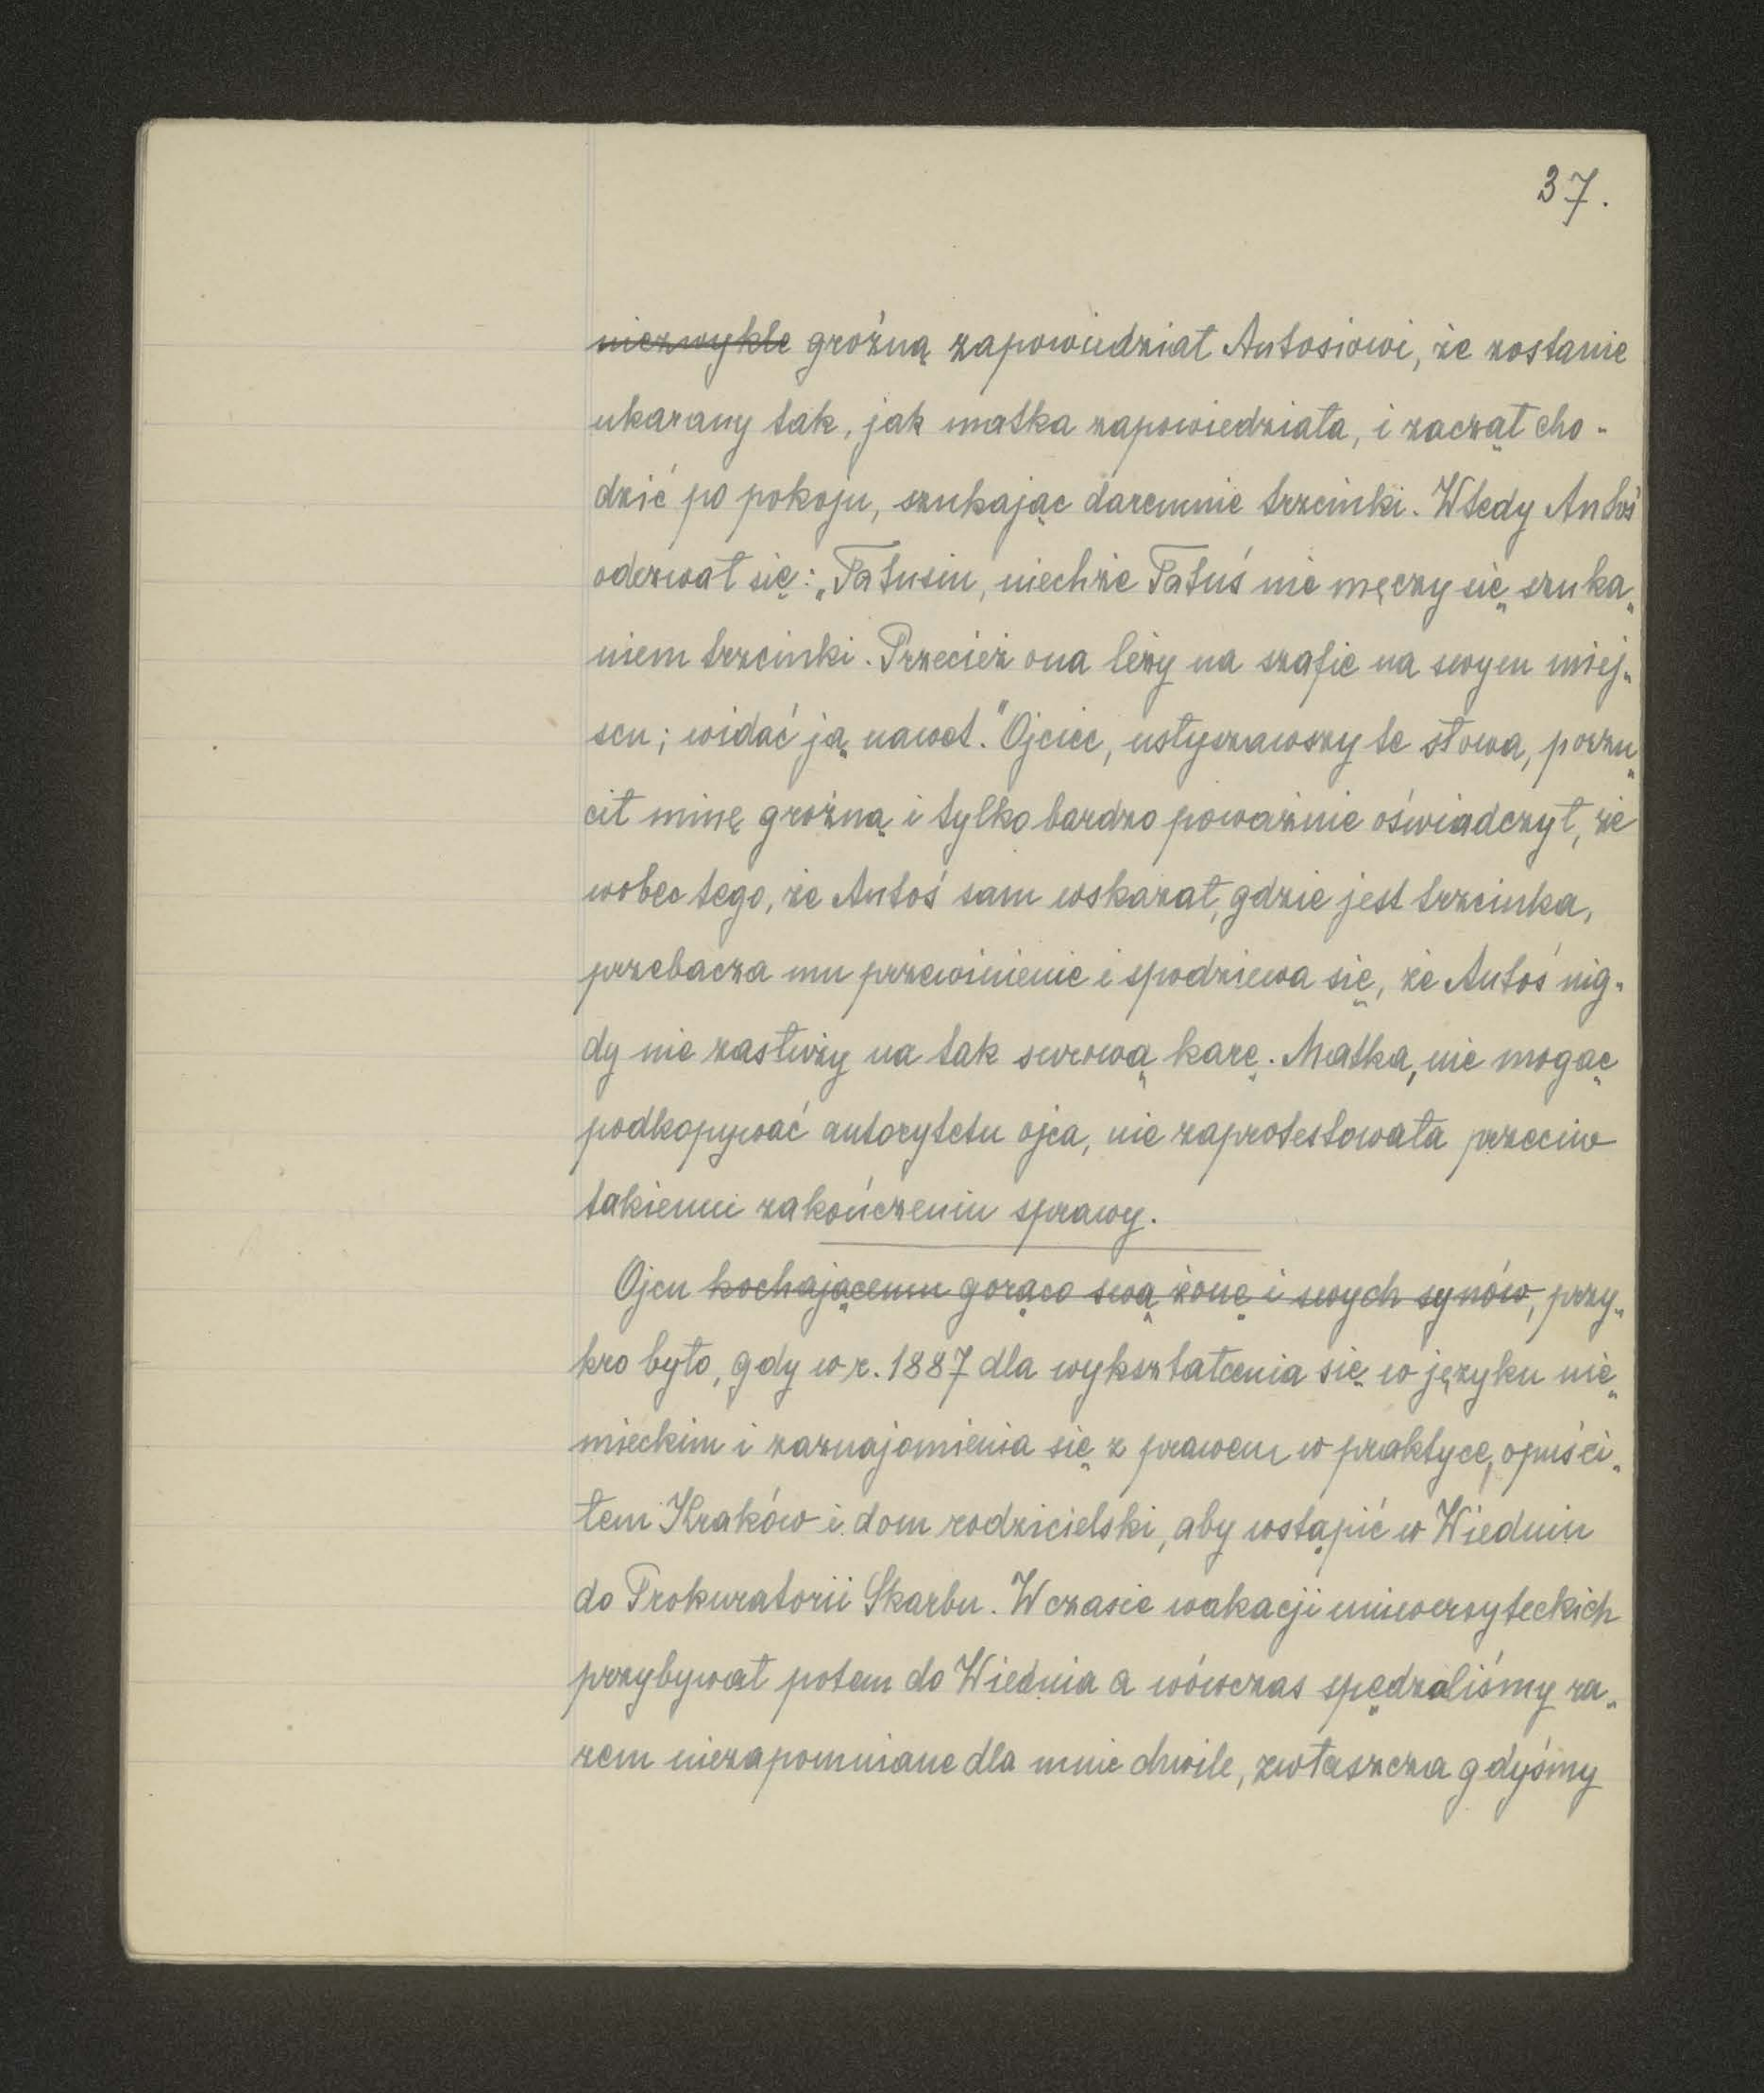 37.
niezwykle groźną zapowiedział Antosiowi, że zostanie
ukarany tak, jak matka zapowiedziała, i zaczął cho-
dzić po pokoju, szukając daremnie trzcinki. Wtedy Antoś
odezwał się: „Tatusiu, niechże Tatuś nie męczy się szuka-
niem trzcinki. Przecież ona leży na szafie na swym miej-
scu; widać ją nawet." Ojciec, usłyszawszy te słowa, porzu-
cił minę groźną i tylko bardzo poważnie oświadczył, że
wobec tego, że Antoś sam wskazał, gdzie jest trzcinka,
przebacza mu przewinienie i spodziewa się, że Antoś nig-
dy nie zasłuży na tak surową karę. Matka, nie mogąc
podkopywać autorytetu ojca, nie zaprotestowała przeciw
takiemu zakończeniu sprawy.
Ojcu kochającemu gorąco swą żonę i swych synów, przy-
kro było, gdy w r. 1887 dla wykształcenia się w języku nie-
mieckim i zaznajomienia się z prawem w praktyce, opuści-
łem Kraków i dom rodzicielski, aby wstąpić w Wiedniu
do Prokuratorii Skarbu. W czasie wakacji uniwersyteckich
przybywał potem do Wiednia a wówczas spędzaliśmy ra-
zem niezapomniane dla mnie chwile, zwłaszcza gdyśmy